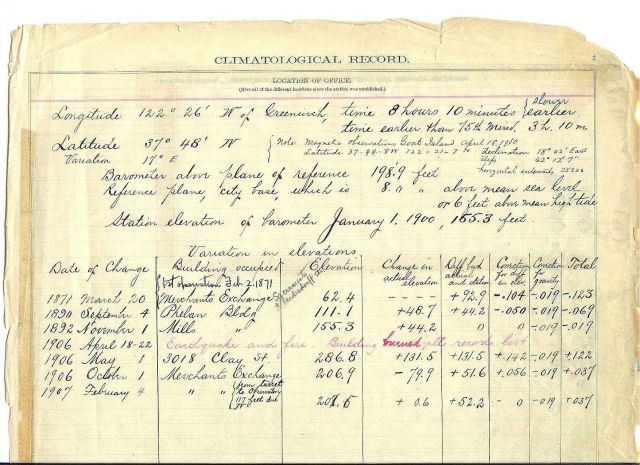 CLIMATOLOGICAL RECORD.
LOCATION OF OFFICE.
(Give all of the different locations since the station was established.)
Longitude 122° 26' W of Greenwich, time 8 hours 10 minutes { slower earlier
time earlier than 75th Merid. 3h. 10m
Latitude 37° 48' N { Note Magnetic observations Goat Island April 18, 1910
Latitude 37-48-8N 122-21-7 W Declination 18° 02' East
Variation 17° E Dip 62° 12' 7"
Horizontal intensity 25228
Barometer above plane of reference 198.9 feet
Reference plane, city base, which is 8.0 " above mean sea level
or 6 feet above mean high tide
Station elevation of barometer January 1, 1900, 155.3 feet.
Variation in elevations
Date of Change Building occupied Elevation Change in actual elevation Diff betw actual and station Correction for diff in elev. Correction for gravity Total
1st observation Feb 2, 1871
1871 March 20 Merchants Exchange 62.4 - - - +92.9 -.104 -.019 -.123
1890 September 4 Phelan Bldg 111.1 +48.7 +44.2 -.050 -.019 -.069
1892 November 1 Mills " 155.3 +44.2 0 0 -.019 -.019
1906 April 18-22 Earthquake and fire Building burned; all records lost
1906 May 1 3018 Clay St. 286.8 +131.5 +131.5 +.142 -.019 +.122
1906 October 1 Merchants Exchange 206.9 - 79.9 +51.6 +.056 -.019 +.037
1907 February 4 " " { from turret
207.5 + 0.6 +52.2 - 0 -.019 +.037